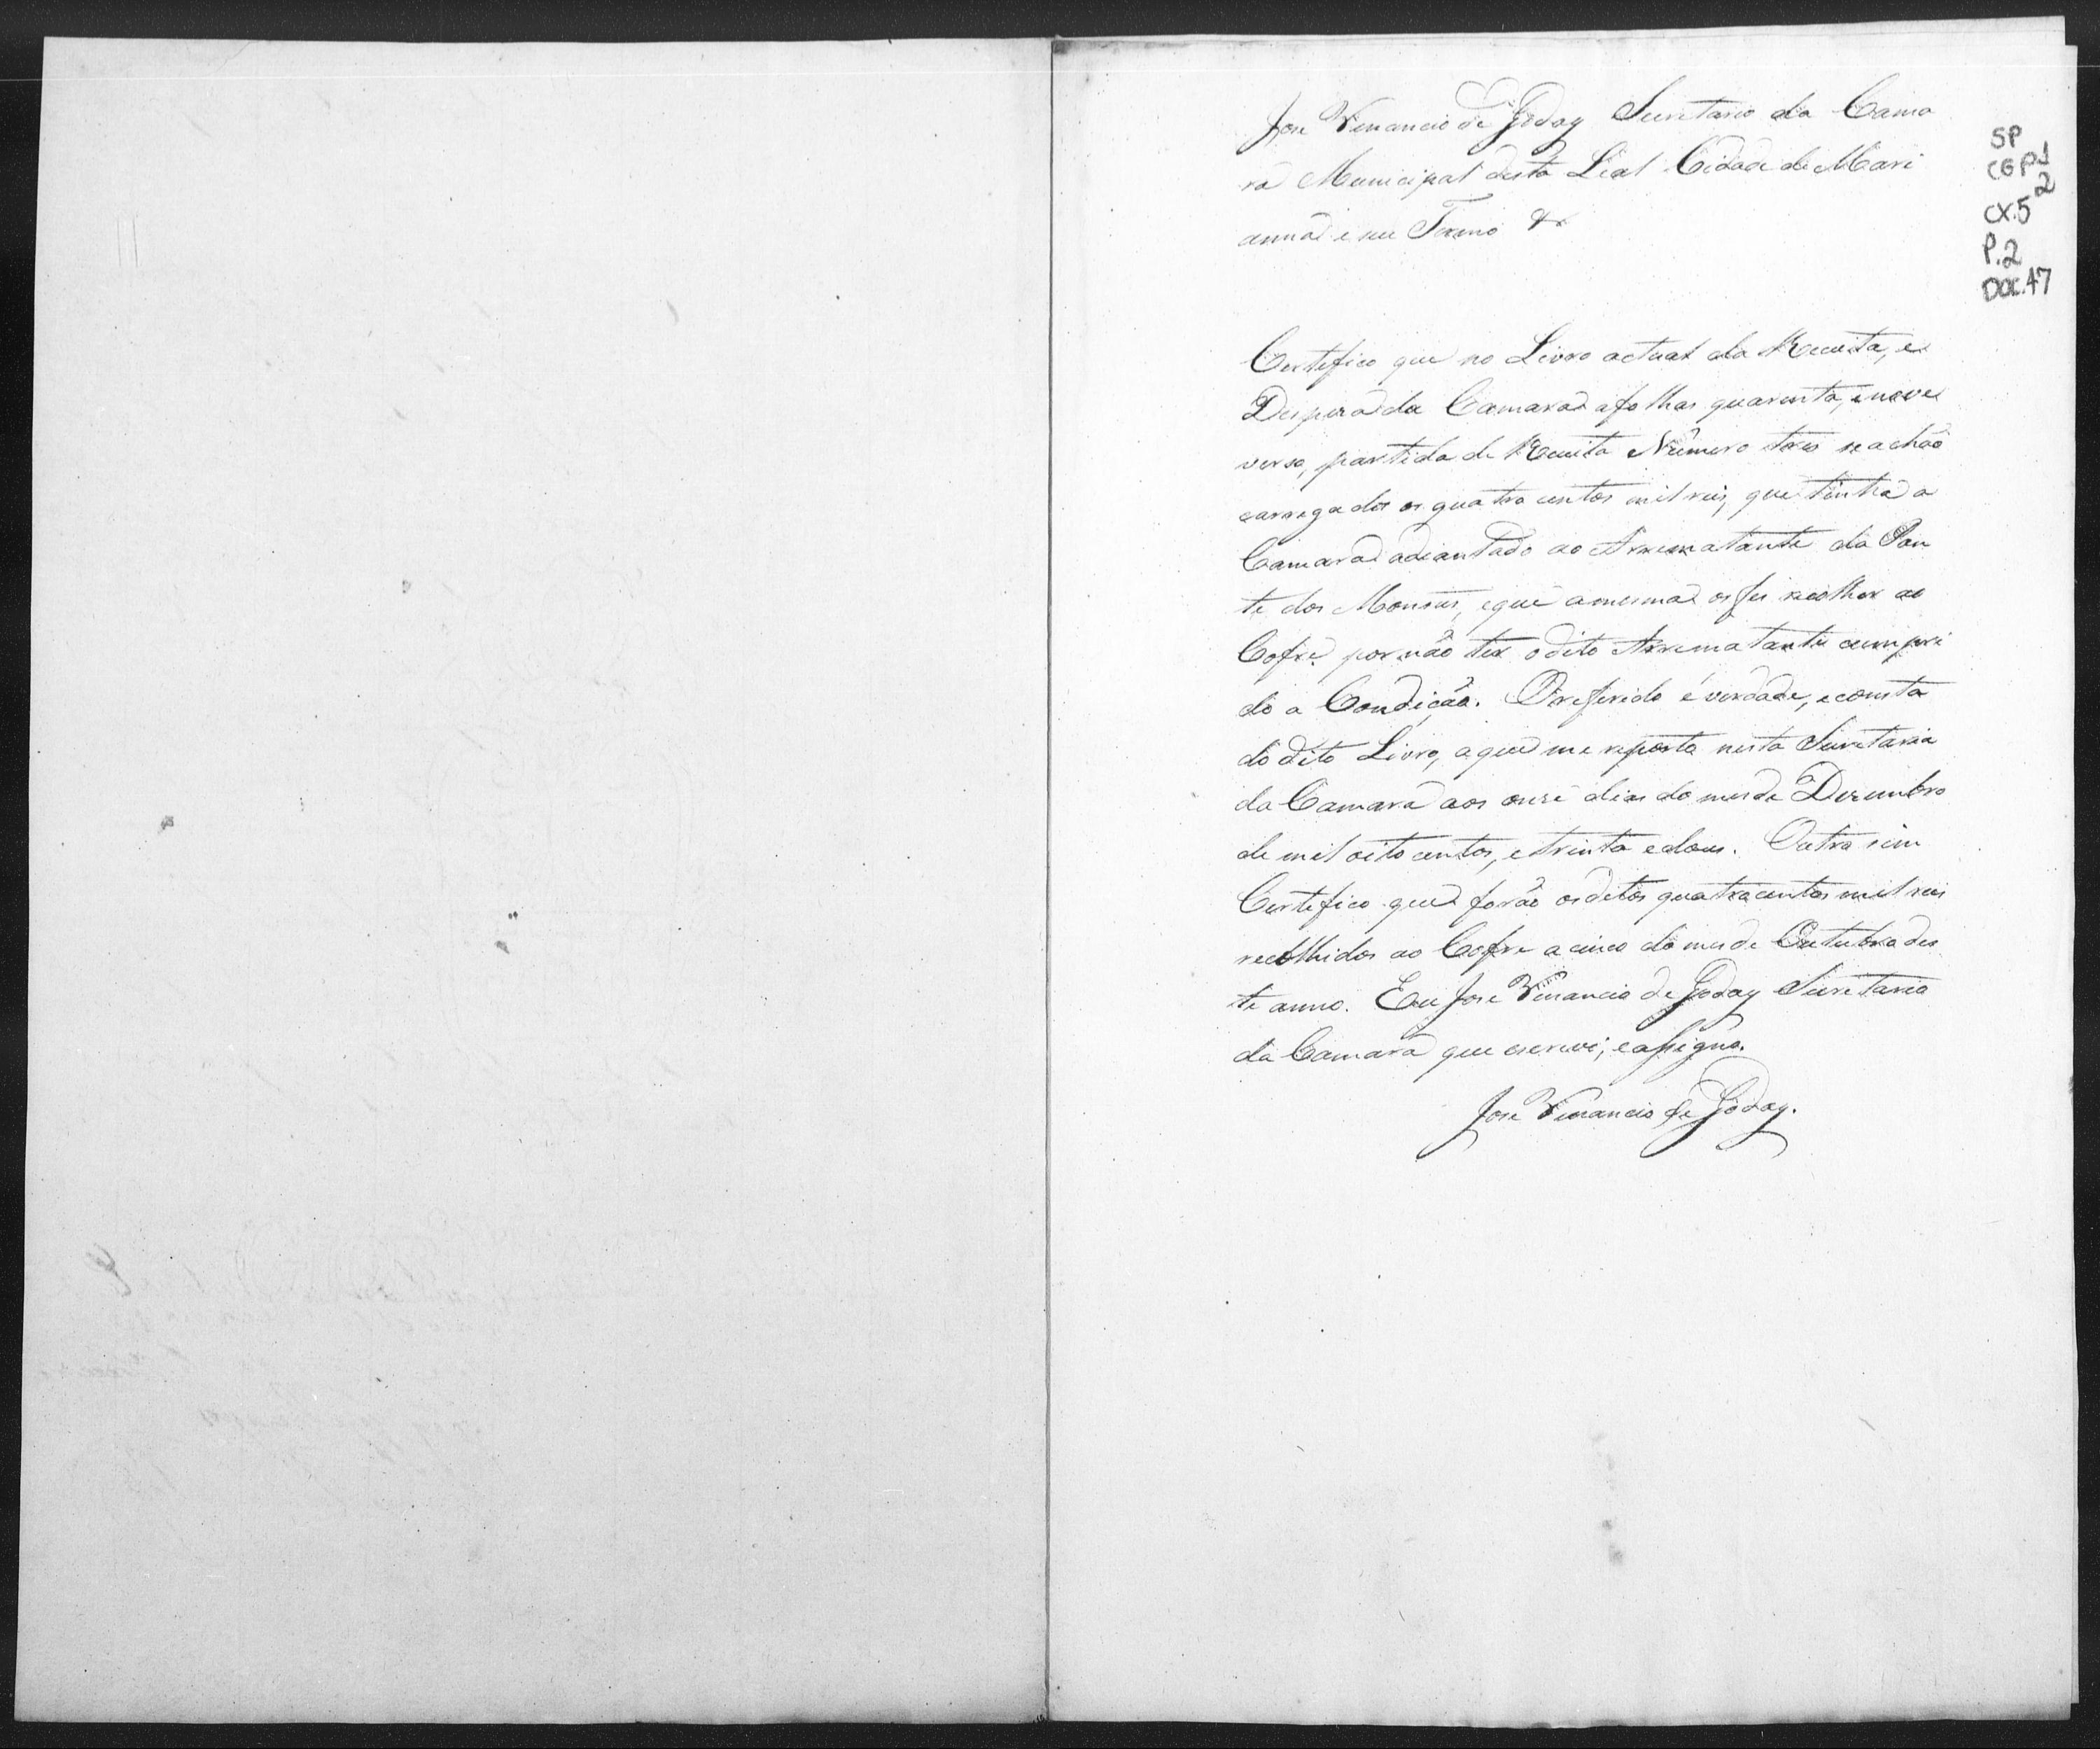 Jose Venancio de Godoy Secretario da Cama
ra Municipal desta Leal Cidade de Mari
anna e seu Termo &
SP
CGP 1
2
CX.5
P.2
DOC.47
Certifico que no Livro actual da Receita, e
Despeza da Camara afolhas quarenta, e nove
verso, partida de Receita Numero tres se achão
carregados os quatro centos mil reis, que tinha a
Camara adiantado ao Arrematante da Pon
te dos Monsús, eque amesma os fes recolher ao
Cofre por não ter odito Arrematante cumpri
do a Condição. Oreferido é verdade, econsta
do dito Livro, aque me reporto nesta Secretaria
da Camara aos onze dias do mes de Dezembro
de mil oito centos, e trinta edous. Outro sim
Certifico que forão os ditos quatrocentos mil reis
recolhidos ao Cofre a cinco do mes de Outubro des
te anno. Eu Jose Venancio de Godoy Secretario
da Camara que escrevi, eassigno.
Jose Venancio de Godoy.